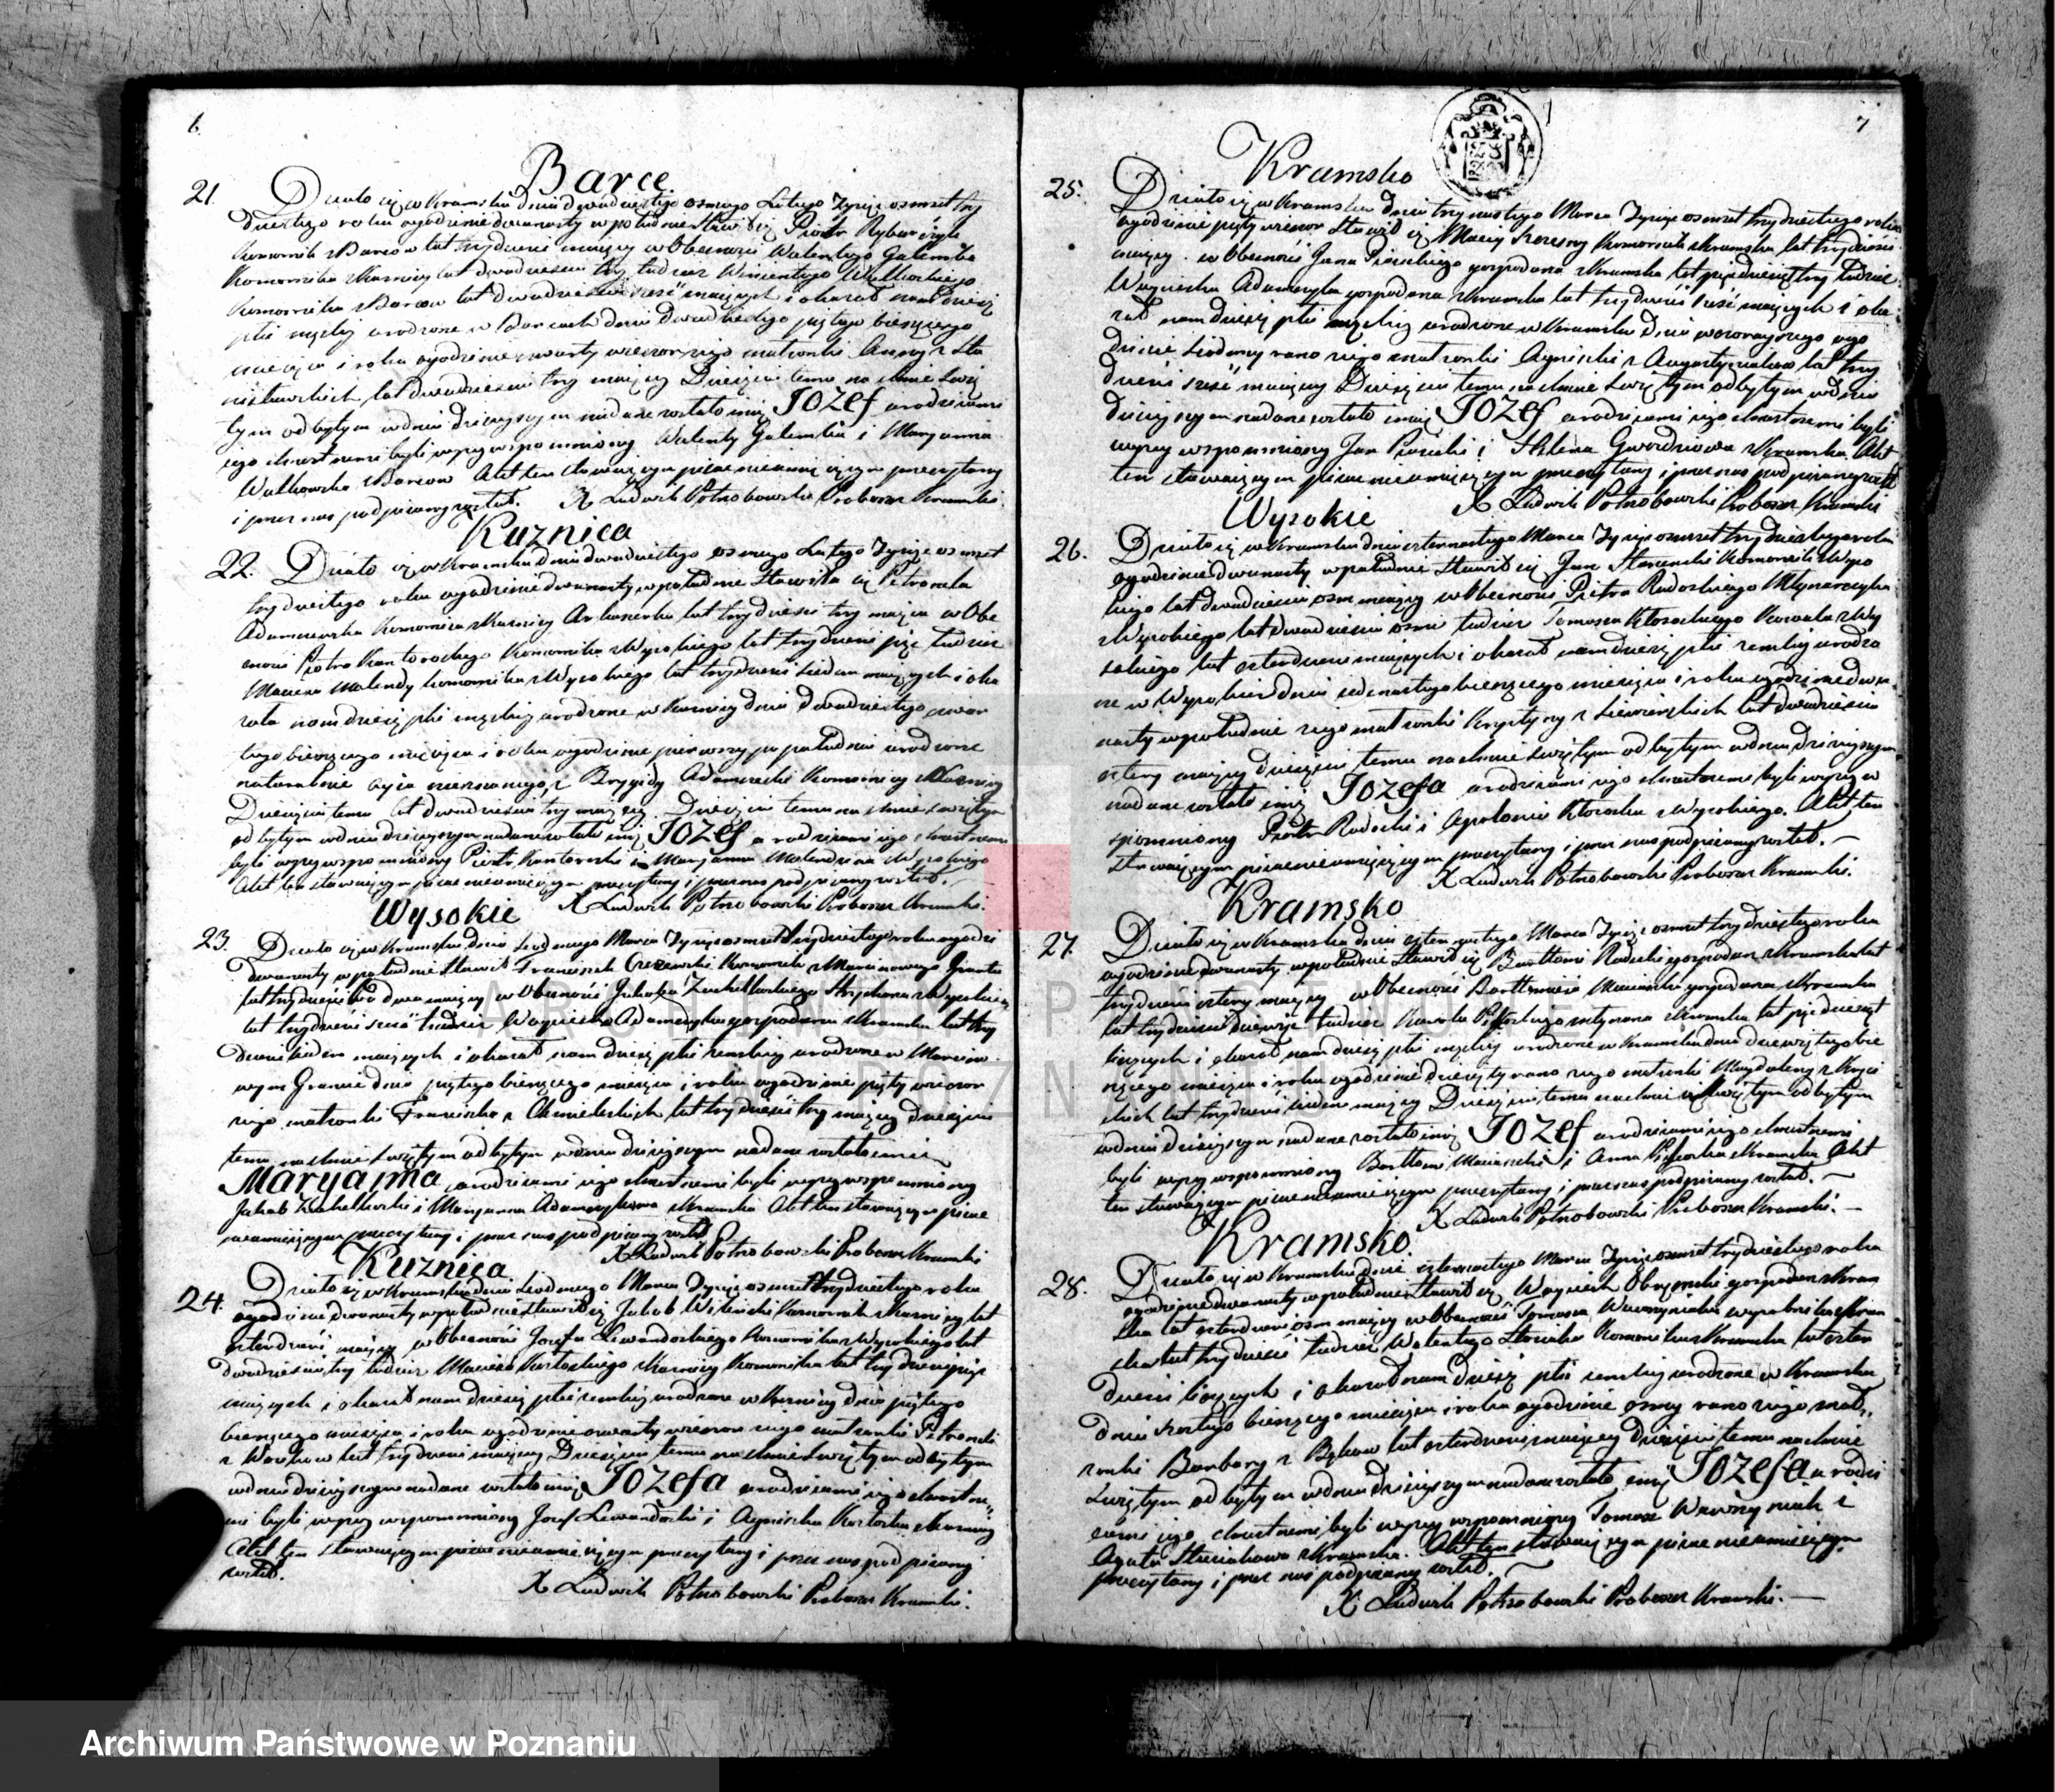 6.
Barce.
21. Działo się w Kramsku dnia dwudziestego osmego Lutego Tysiąc osmset trzy
dziestego roku o godzinie dwunasty w południe stawił się Piotr Rybarczyk
Komornik z Barców lat trzydzieści maiący w Obecności Walentego Galemba
Komornika z Kuznicy lat dwadzieścia trzy tudzież Wincentego Walkoskiego
Komornika z Barców lat dwadzieścia sześć maiących i okazał nam dziecię
płci męzkiy urodzone w Barcach dnia dwudziestego piątego bieżącego
miesiąca i roku o godzinie czwarty wieczor z iego małżonki Anny z Sta
lat dwadzieścia trzy maiący Dziecięciu temu na chrzcie świę
tym odbytym w dniu dzisieyszym nadane zostało imię JOZef a rodzicami
iego chrzestnemi byli wyzey wspomniony Walenty Galemba i Maryanna
Walkowska z Barców Akt ten stawaiącym pisać nieumiejącym przeczytany
i przez nas podpisany został. X Ludwik Potrzobowski Proboszcz Kramski.
Kuznica
22. Działo się w Kramsku dnia dwudziestego osmego Lutego Tysiąc osmset
trzydziestego roku o godzinie dwunasty w południe Stawiła się Petronela
Adamczewska Komornica z Kuznicy Akuszerka lat trzydzieści trzy maiąca w Obe
cności Piotra Kantoroskiego Komornika z Wysokiego lat trzydzieści pięć tudzież
Macieia Malendy komornika z Wysokiego lat trzydzieści siedem maiących i oka
zała nam dziecię płci męzkiy urodzone w Kuznicy dnia dwudziestego czwar
tego bieżącego miesiąca i roku o godzinie pierwszy po południu urodzone
naturalnie oyca nieznanego z Brygidy Adamczeski Komornicy z Kuznicy
Dziecięciu temu lat dwadzieścia trzy maiący. Dziecięciu temu na chrzcie świętym
odbytym w dniu dzisieyszym nadane zostało imię JOZef a rodzicami iego chrzestnemi
byli wyzey wspomniony Piotr Kantoroski i Maryanna Malendzina z Wysokiego
Akt ten stawaiącym pisać nieumieiącym przeczytany i przez nas podpisany został.
X Ludwik Potrzobowski Proboszcz Kramski.
Wysokie
23. Działo się w Kramsku dnia siodmego Marca Tysiąc osmset trzydziestego roku o godzi
dwunasty w południe stawił Franciszek Komornik z Marcinowego Grontu
lat trzydzieści dwa maiący w Obecności Jakóba Strycharza z Wysokiego
lat trzydzieści sześć tudzież Woyciecha Adamczyka gospodarza z Kramska lat trzy
dzieści siedem maiących i okazał nam dziecię płci zenskiey urodzone w Marcino
wym Groncie dnia piątego bieżącego miesiąca i roku o godzinie piąty wieczor
z iego małżonki Franciszki z Chmieleskich lat trzydzieści trzy maiący dziecięciu
temu na chrzcie świętym odbytym w dniu dzisieyszym nadane zostało imię
Maryanna a rodzicami iego chrzestnemi byli wyzey wspomniony
Jakób i Maryanna Adamczykowa z Kramska Akt ten stawaiącym pisać
nieumieiącym przeczytany i przez nas podpisany został
X Ludwik Potrzobowski Proboszcz Kramski
Kuznica
24. Działo się w Kramsku dnia siodmego Marca Tysiąc osmset trzydziestego roku
o godzinie dwunasty w południe stawił się Jakób Komornik z Kuznicy lat
czterdzieści maiący w Obecności Jozefa Lewandoskiego Komornika z Wysokiego lat
dwadzieścia trzy tudzież Macieia z Kuznicy Komornika lat trzydzieści pięć
maiących i okazał nam dziecię płci zenskiey urodzone w Kuznicy dnia piątego
bieżącego miesiąca i roku o godzinie czwarty wieczor z iego małżonki Petroneli
z lat trzydzieści maiący Dziecięciu temu na chrzcie świętym odbytym
w dniu dzisieyszym nadane zostało imię JOZefa a rodzicami iego chrzestne
mi byli wyzey wspomniony Jozef Lewandoski i Agnieszka z Kuznicy
Akt ten stawaiącym pisać nieumieiącym przeczytany i przez nas podpisany
został.
X Ludwik Potrzobowski Proboszcz Kramski.
7
Kramsko
25. Działo się w Kramsku dnia trzynastego Marca Tysiąc osmset trzydziestego roku
o godzinie piąty wieczor Stawił się Maciey Komornik z Kramska lat trzydzieści
maiący w Obecności Jana gospodarza z Kramska lat pięćdziesiąt trzy tudzież
Woyciecha Adamczyka gospodarza z Kramska lat trzydzieści sześć maiących i oka
zał nam dziecię płci męzkiy urodzone w Kramsku dnia wczorayszego o go
dzinie siodmy rano z iego małżonki Agnieszki z Augustyniaków lat trzy
dzieści sześć maiący Dziecięciu temu na chrzcie świętym odbytym w dniu
dzisieyszym nadane zostało imię JOZef a rodzicami iego chrzestnemi byli
wyzey wspomniony Jan i Helena Gwozdziowa z Kramska Akt
ten stawaiącym pisać nieumieiącym przeczytany i przez nas podpisany został
X Ludwik Potrzobowski Proboszcz Kramski
Wysokie
26. Działo się w Kramsku dnia czternastego Marca Tysiąc osmset trzydziestego roku
o godzinie dwunasty w południe Stawił się Jan Komornik z Wyso
kiego lat dwadzieścia osm maiący w Obecności Piotra Radoskiego Młynarczyka
z Wysokiego lat dwadzieścia osm tudzież Tomasza Kłososkiego Kowala z Wy
sokiego lat czterdzieści maiących i okazał nam dziecię płci zenskiy urodzo
ne w Wysokiem dnia iedenastego bieżącego miesiąca i roku o godzinie dwu
nasty w południe z iego małżonki Krystyny z lat dwadzieścia
cztery maiący dziecięciu temu na chrzcie świętym odbytym w dniu dzisieyszym
nadane zostało imię JOZefa a rodzicami iego chrzestnemi byli wyzey w
spomniony Piotr Radoski i Apolonia Kłososka z Wysokiego. Akt ten
stawaiącym pisać nieumieiącym przeczytany i przez nas podpisany został.
X Ludwik Potrzobowski Proboszcz Kramski.
Kramsko
27. Działo się w Kramsku dnia czternastego Marca Tysiąc osmset trzydziestego roku
o godzinie dwunasty w południe Stawił się Bartłomi gospodarz z Kramska lat
trzydzieści cztery maiący w Obecności Bartłomieia gospodarza z Kramska
lat trzydzieści dziewięć tudzież Karola młynarza z Kramska lat pięćdziesiąt
liczących i okazał nam dziecię płci męzkiy urodzone w Kramsku dnia dziewiątego bie
żącego miesiąca i roku o godzinie dziesiąty rano z iego małżonki Magdaleny z
lat trzydzieści siedem maiący Dziecięciu temu na chrzcie świętym odbytym
w dniu dzisieyszym nadane zostało imię JOZef a rodzicami iego chrzestnemi
byli wyzey wspomniony Bartłomi i Anna z Kramska Akt
ten stawaiącym pisać nieumieiącym przeczytany i przez nas podpisany został.
X Ludwik Potrzobowski Proboszcz Kramski.
Kramsko.
28. Działo się w Kramsku dnia czternastego Marca Tysiąc osmset trzydziestego roku
o godzinie dwunasty w południe Stawił się Woyciech gospodarz z Kram
ska lat czterdzieści osm maiący w Obecności Tomasza Wawrzyniaka wyrobnika z Kram
ska lat trzydzieści tudzież Walentego Stasiaka Komornika z Kramska lat czter
dzieści liczących i okazał nam dziecię płci zenskiy urodzone w Kramsku
dnia szostego bieżącego miesiąca i roku o godzinie osmy rano z iego małż
zonki Barbary z Bąków lat czterdzieści maiący dziecięciu temu na chrzcie
świętym odbytym w dniu dzisieyszym nadane zostało imię JOZefa a rodzi
cami iego chrzestnemi byli wyzey wspomniony Tomasz Wawrzyniak i
Agata Stasiakowa z Kramska. Akt ten stawaiącym pisać nieumieiącym
przeczytany i przez nas podpisany został.
X Ludwik Potrzobowski Proboszcz Kramski.
ARCHIWUM PAŃSTWOWE
W POZNANIU
Archiwum Państwowe w Poznaniu